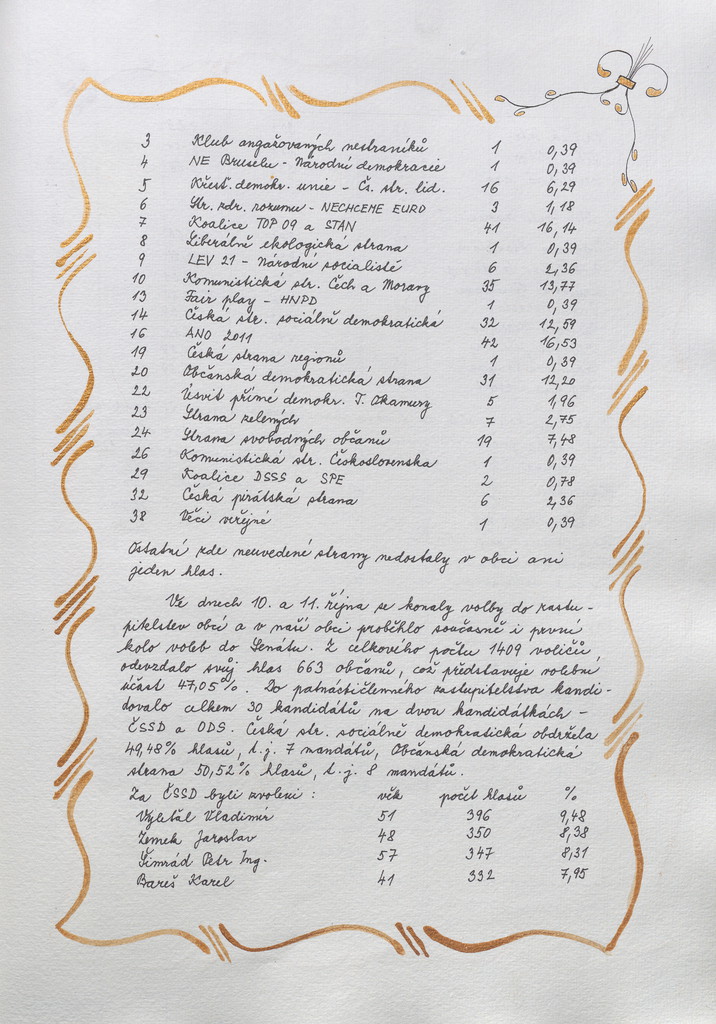 3 Klub angažovaných nestraníků 1 0,39
4 NE Bruselu - Národní demokracie 1 0,39
5 Křesť. demokr. unie - Čs. str. lid. 16 6,29
6 Str. zdr. rozumu - NECHCEME EURO 3 1,18
7 Koalice TOP 09 a STAN 41 16,14
8 Liberálně ekologická strana 1 0,39
9 LEV 21 - Národní socialisté 6 2,36
10 Komunistická str. Čech a Moravy 35 13,77
13 Fair play - HNPD 1 0,39
14 Česká str. sociálně demokratická 32 12,59
16 ANO 2011 42 16,53
19 Česká strana regionů 1 0,39
20 Občanská demokratická strana 31 12,20
22 Úsvit přímé demokr. T. Okamury 5 1,96
23 Strana zelených 7 2,75
24 Strana svobodných občanů 19 7,48
26 Komunistická str. Československa 1 0,39
29 Koalice DSSS a SPE 2 0,78
32 Česká pirátská strana 6 2,36
38 Věci veřejné 1 0,39
Ostatní zde neuvedené strany nedostaly v obci ani
jeden hlas.
Ve dnech 10. a 11. října se konaly volby do zastu-
pitelstev obcí a v naší obci proběhlo současně i první
kolo voleb do Senátu. Z celkového počtu 1409 voličů
odevzdalo svůj hlas 663 občanů, což představuje volební
účast 47,05%. Do patnáctičlenného zastupitelstva kandi-
dovalo celkem 30 kandidátů na dvou kandidátkách -
ČSSD a ODS. Česká str. sociálně demokratická obdržela
49,48% hlasů, t.j. 7 mandátů, Občanská demokratická
strana 50,52% hlasů, t.j. 8 mandátů.
Za ČSSD byli zvoleni : věk počet hlasů %
Vyletăl Vladimír 51 396 9,48
Zemek Jaroslav 48 350 8,38
Šimrád Petr Ing. 57 347 8,31
Bareš Karel 41 332 7,95